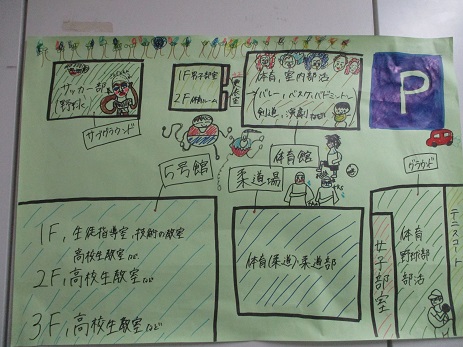 サッカー部
野球部
サブグラウンド
1F男子部室
2F
体育,室内部活
バレー,バスケ,バドミントン
剣道,演劇
P
5号館
柔道場
体育館
グラウンド
テニスコート
1F,生徒指導室,技術の教室
高校生教室など
2F,高校生教室など
3F,高校生教室など
体育(柔道)・柔道部
女子部室
体育
野球部
部活